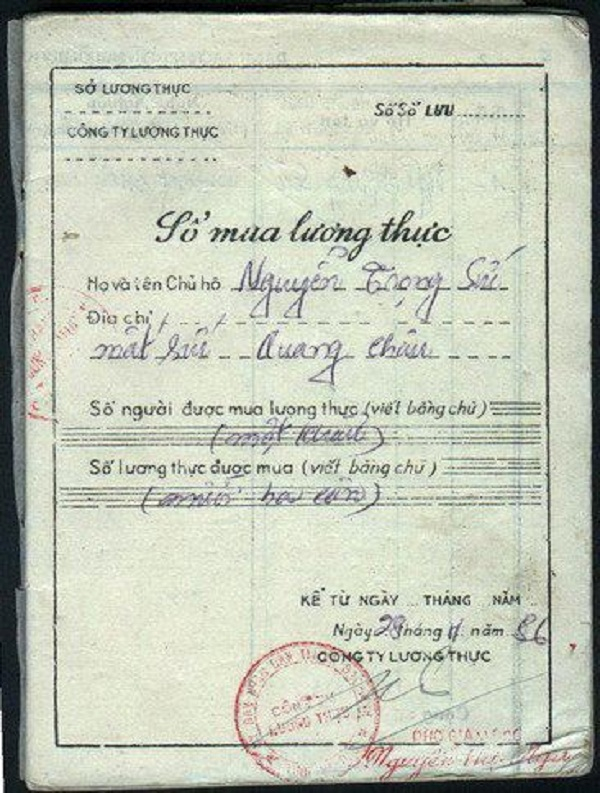 SỞ LƯƠNG THỰC
Số Sổ LƯU
CÔNG TY LƯƠNG THỰC
Sổ mua lương thực
Họ và tên Chủ hộ Nguyễn Trọng Sử
Địa chỉ
Quang Châu
Số người được mua lương thực (viết bằng chữ)
(một
Số lương thực được mua (viết bằng chữ)
ba cân)
KỂ TỪ NGÀY THÁNG NĂM
Ngày 28 tháng 11 năm 86
CÔNG TY LƯƠNG THỰC
CÔNG TY
LƯƠNG THỰC
PHÓ GIÁM ĐỐC
Nguyễn